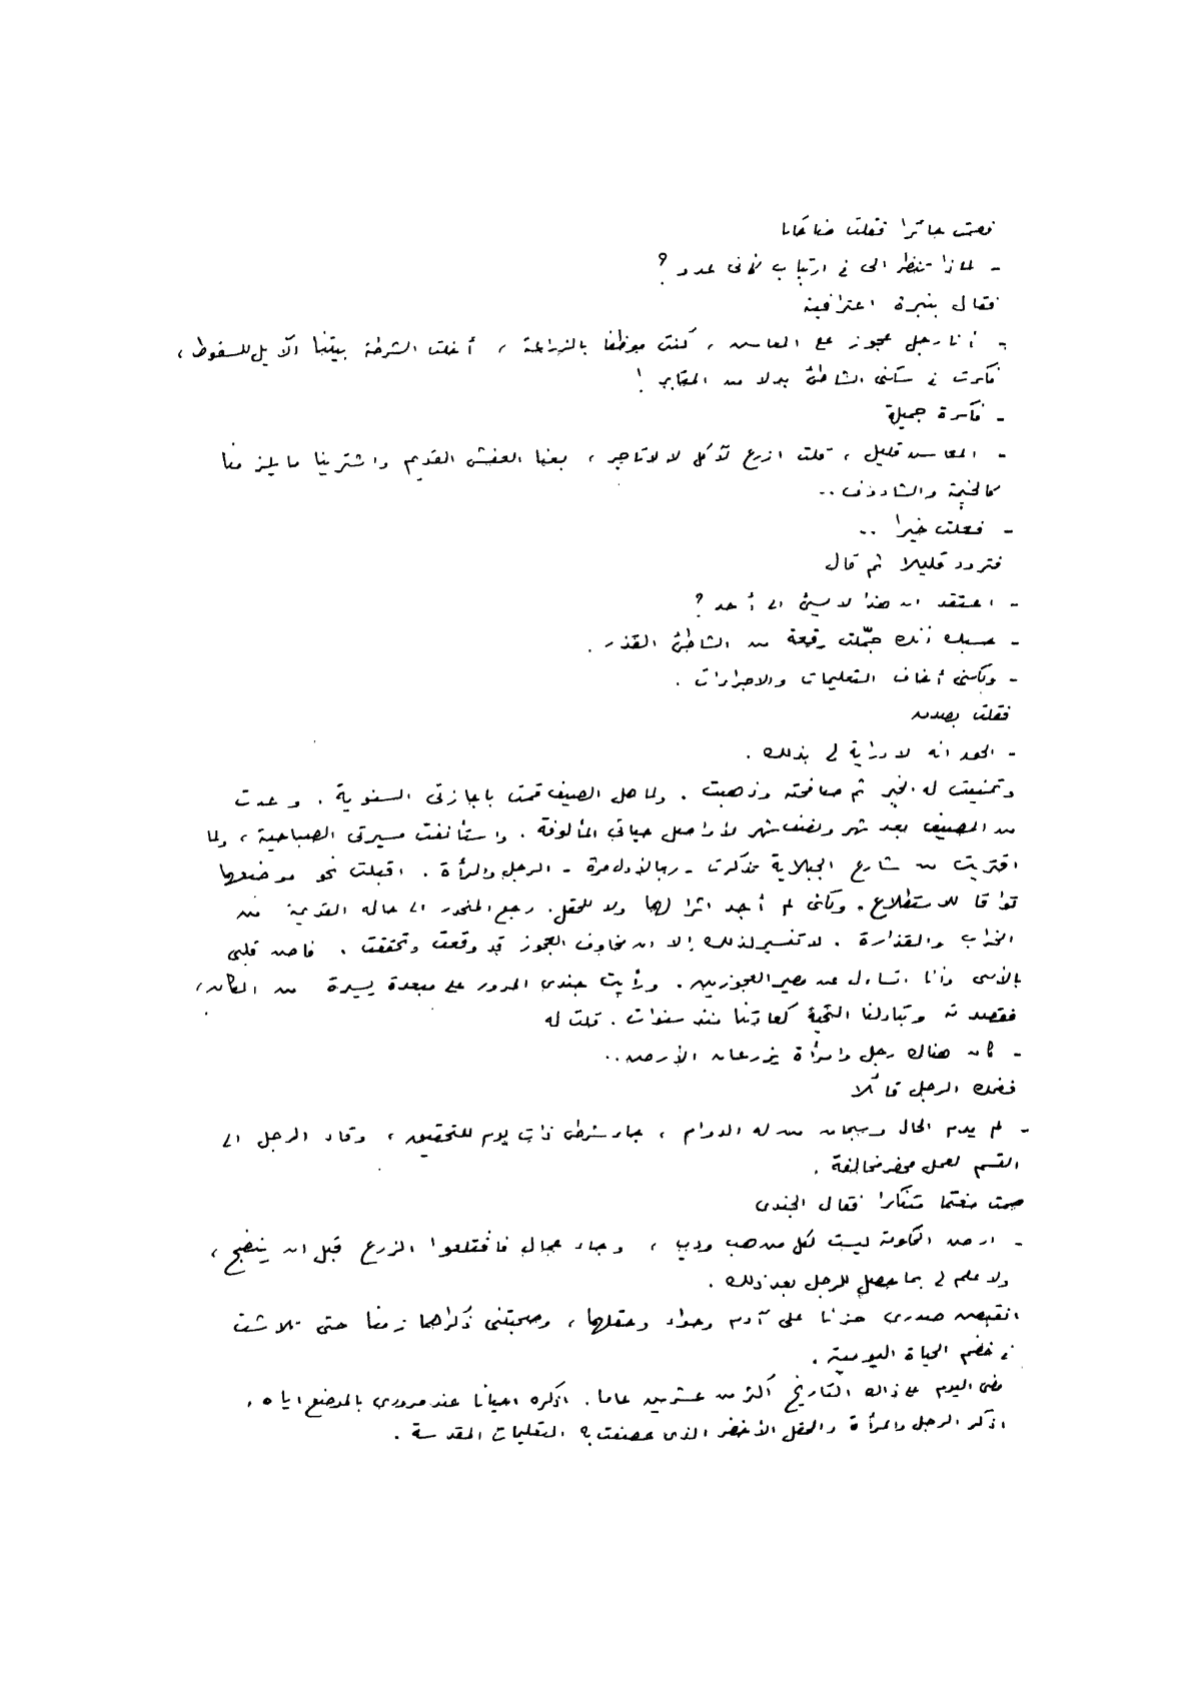 فصمت حائرا فقلت ضاحكا
- لماذا تنظر الى في ارتياب كأنى عدو ؟
فقال بنبرة اعترافية
- أنا رجل عجوز على المعاش ، كنت موظفا بالزراعة ، أخلت الشرطة بيتنا الآيل للسقوط ،
فكرت في سكنى الشاطئ بدلا من المقابر !
- فكرة جميلة
- المعاش قليل ، قلت ازرع لآكل لا لاتاجر ، بعنا العفش القديم واشترينا ما يلزمنا
كالخيمة والشادوف ..
- فعلت خيرا ..
فتردد قليلا ثم قال
- اعتقد ان هذا لا يسئ الى أحد ؟
- حسبك انك جمّلت رقعة من الشاطئ القذر .
- ولكننى أخاف التعليمات والاجراءات .
فقلت بصدق
- الحق انه لا دراية لى بذلك .
وتمنيت له الخير ثم صافحته وذهبت . ولما حل الصيف قمت باجازتى السنوية . وعدت
من المصيف بعد شهر ونصف شهر لأواصل حياتى المألوفة . واستأنفت مسيرتى الصباحية ، ولما
اقتربت من شارع الجبلاية تذكرت - ربما لأول مرة - الرجل والمرأة . اقبلت نحو موضعهما
تواقا للاستطلاع . ولكنى لم أجد اثرا لهما ولا للحقل . رجع المنحدر الى حاله القديمة من
الخراب والقذارة . لا تفسير لذلك إلا ان مخاوف العجوز قد وقعت وتحققت . فاض قلبى
بالأسى وأنا اتساءل عن مصير العجوزين . ورأيت جندى المرور على مبعدة يسيرة من المكان ،
فقصدته وتبادلنا التحية كعادتنا منذ سنوات . قلت له
- كان هناك رجل وامرأة يزرعان الأرض ..
فضحك الرجل قائلا
- لم يدم الحال وسبحان من له الدوام ، جاء شرطى ذات يوم للتحقيق ، وقاد الرجل الى
القسم لعمل محضر مخالفة .
صمت مغتما متفكرا فقال الجندى
- ارض الحكومة ليست لكل من هب ودب ، وجاء عمال فاقتلعوا الزرع قبل ان ينضج ،
ولا علم لى بما حصل للرجل بعد ذلك .
انقبض صدرى حزنا على آدم وحواء وحقلهما ، وصحبتنى ذكراهما زمنا حتى تلاشت
في خضم الحياة اليومية .
مضى اليوم على ذاك التاريخ أكثر من عشرين عاما . اذكره احيانا عند مرورى بالموضع اياه ،
اذكر الرجل والمرأة والحقل الأخضر الذى عصفت به التعليمات المقدسة .